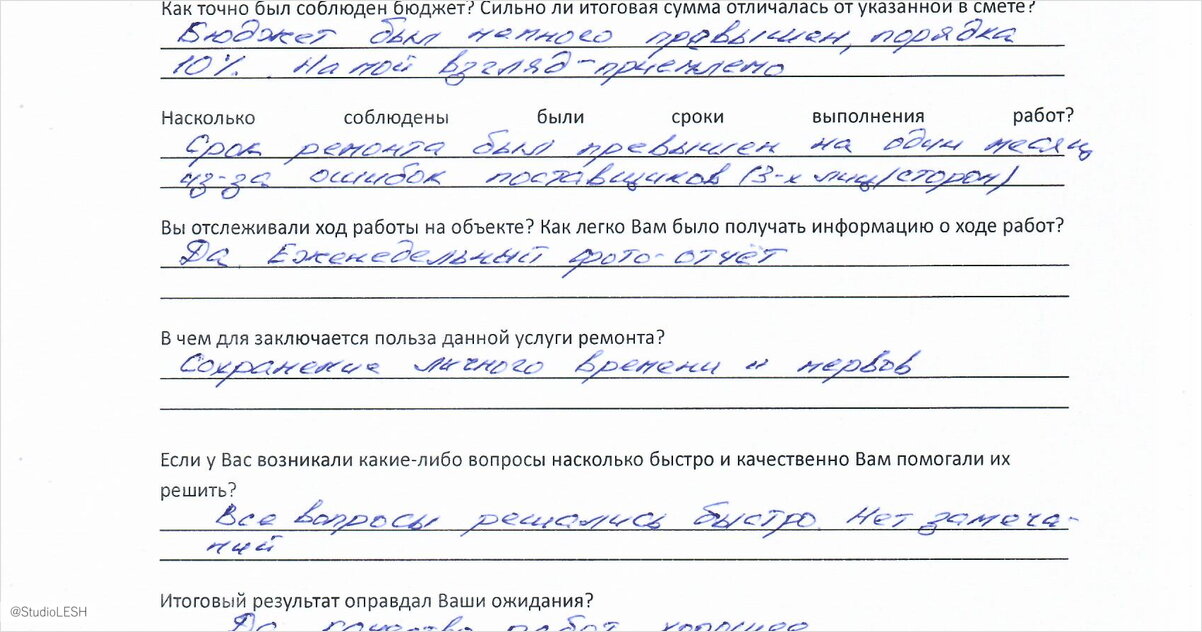 Как точно был соблюден бюджет? Сильно ли итоговая сумма отличалась от указанной в смете?
Бюджет был немного превышен, порядка
10%. На мой взгляд-приемлемо
Насколько соблюдены были сроки выполнения работ?
Срок ремонта был превышен на один месяц
из-за ошибок поставщиков (3-х лиц/сторон)
Вы отслеживали ход работы на объекте? Как легко Вам было получать информацию о ходе работ?
Да. Еженедельный фото-отчёт
В чем для заключается польза данной услуги ремонта?
Сохранение личного времени и нервов
Если у Вас возникали какие-либо вопросы насколько быстро и качественно Вам помогали их
решить?
Все вопросы решались быстро. Нет замеча-
ний
Итоговый результат оправдал Ваши ожидания?
Да, качество работ хорошее
@StudioLESH